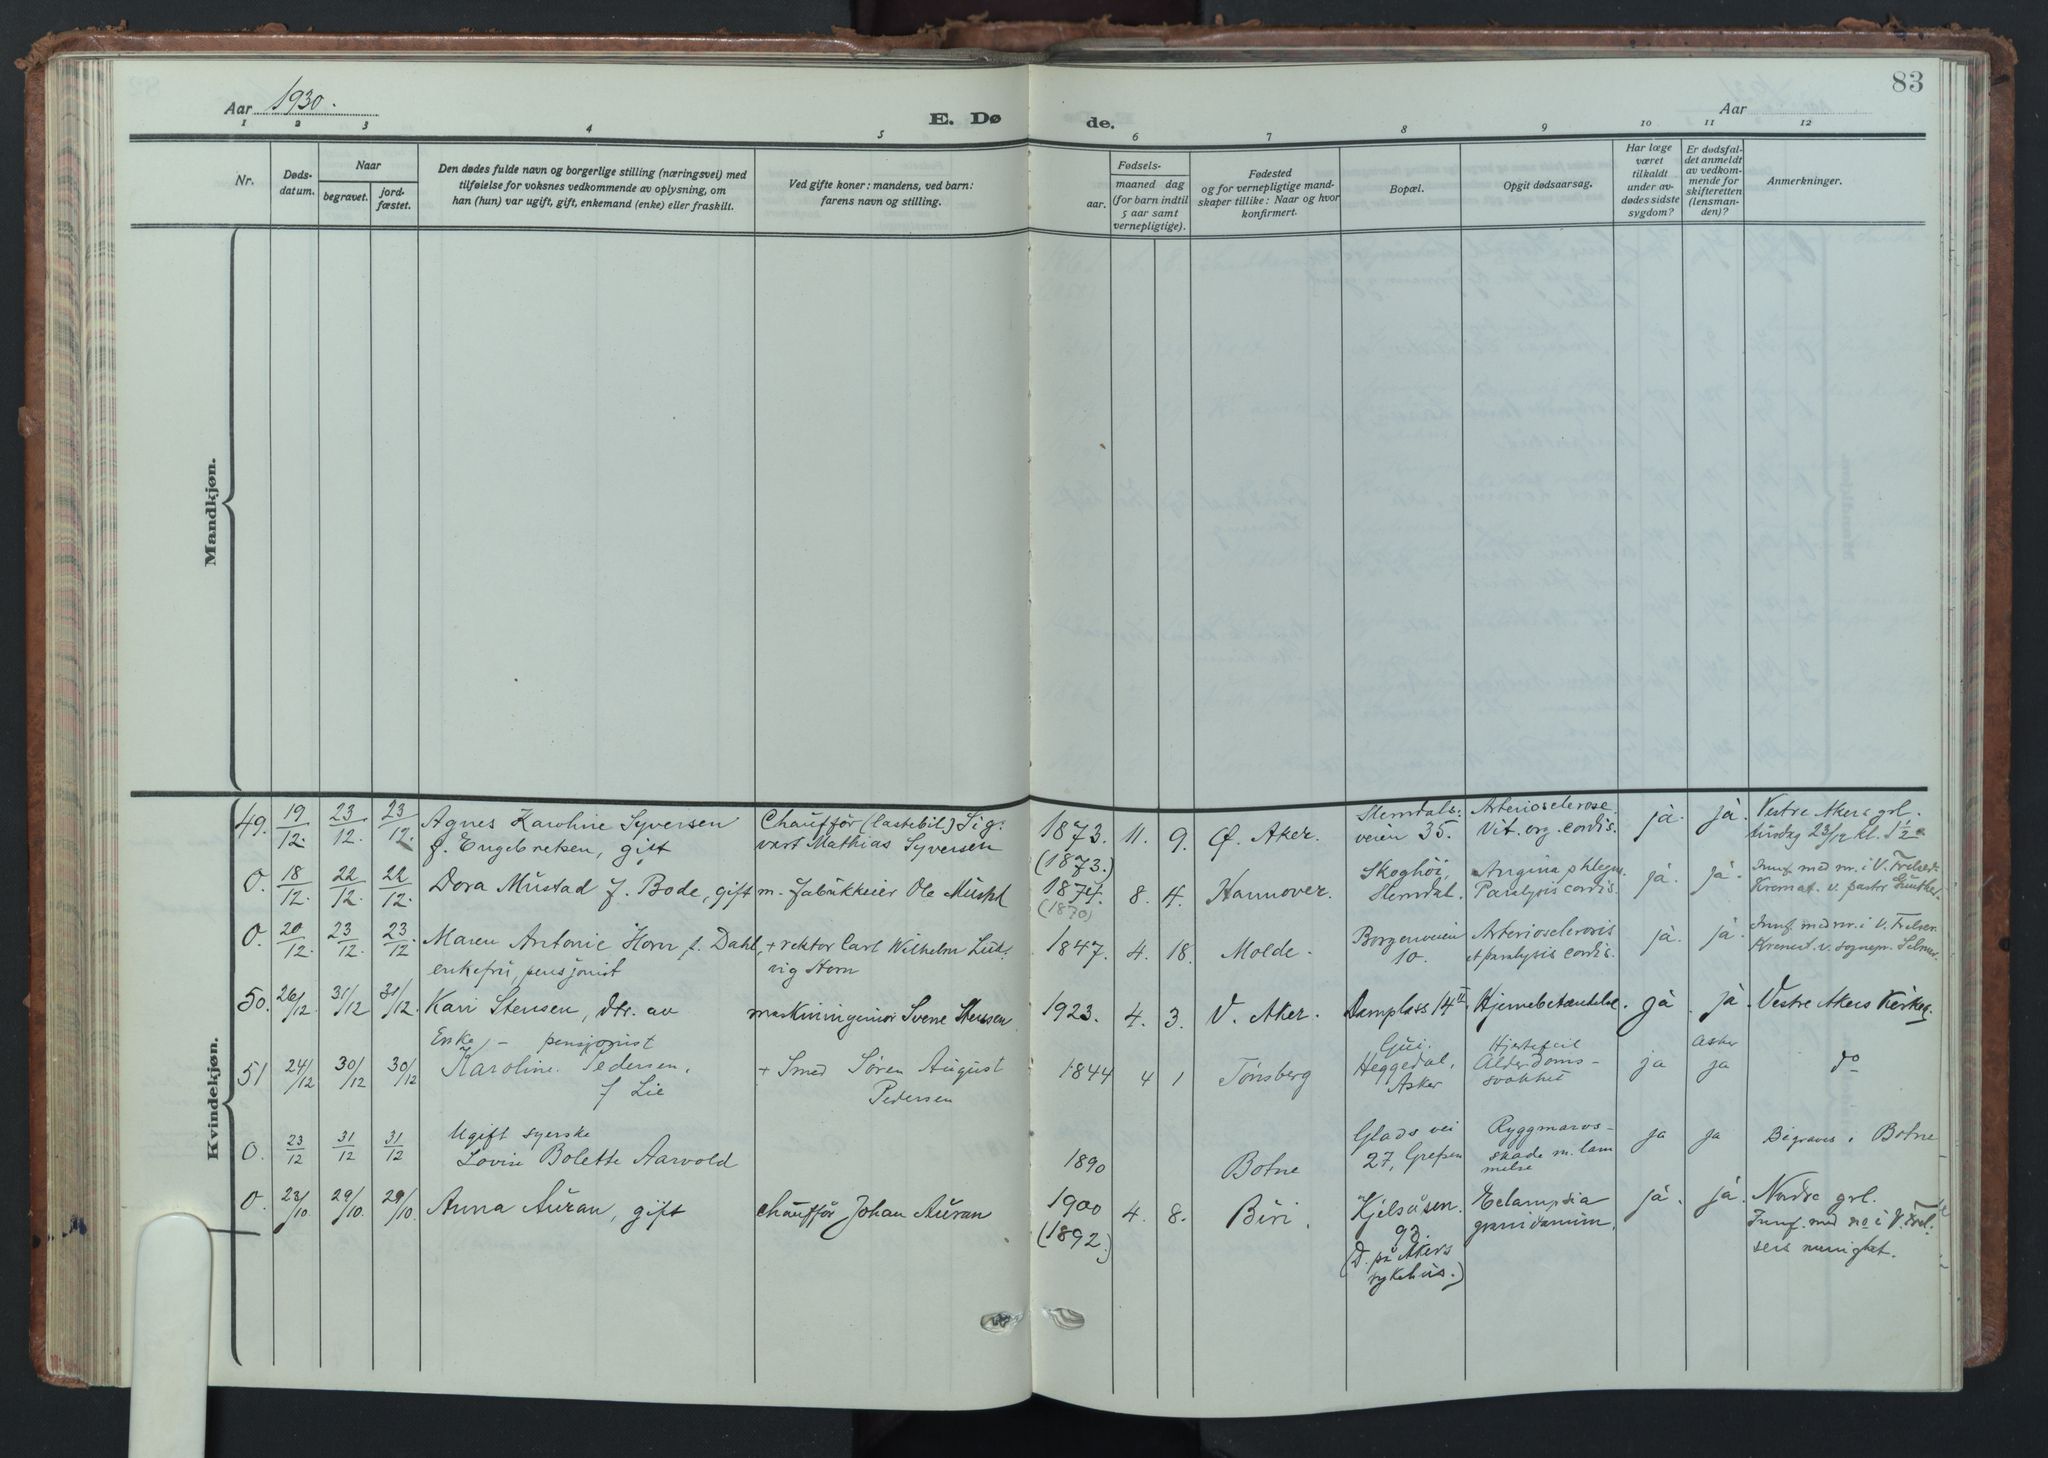 83
Aar 1930.
E. Dø de.
Aar
1 2 3 4 5 6 7 8 9 10 11 12
Nr.
Døds-
datum.
Naar
begravet.
jord-
fæstet.
Den dødes fulde navn og borgerlige stilling (næringsvei) med
tilføielse for voksnes vedkommende av oplysning, om
han (hun) var ugift, gift, enkemand (enke) eller fraskilt.
Ved gifte koner: mandens, ved barn:
farens navn og stilling.
Fødsels-
aar.
maaned dag
(for barn indtil
5 aar samt
vernepligtige).
Fødested
og for vernepligtige mand-
skaper tillike: Naar og hvor
konfirmert.
Bopæl.
Opgit dødsaarsag.
Har læge
været
tilkaldt
under av-
dødes sidste
sygdom?
Er dødsfal-
det anmeldt
av vedkom-
mende for
skifteretten
(lensman-
den)?
Anmerkninger.
Mandkjøn.
Kvindekjøn.
49. 19/12. 23/12. 23/12.
Agnes Karoline Syversen
f. Engebretsen, gift
Chauffør (lastebil) Sig-
vart Mathias Syversen
1873. 11. 9. Ø. Aker.
(1873.)
Slemdals-
veien 35.
Arteriosclerose.
Vit. org. cordis.
ja. ja.
Vestre Akers grl.
tirsdag 23/12 kl. 1½
0. 18/12. 22/12. 22/12.
Dora Mustad f. Bode, gift
m. fabrikkeier Ole Mustad
1874. 8. 4. Hannover.
(1870)
Skoghöi,
Slemdal.
Angina phlegm.
Paralysis cordis.
ja. ja.
Innf. med nr. i V. Frelsers
Kremat. v. pastor
0. 20/12. 23/12. 23/12.
Maren Antonie Horn f. Dahl,
enkefru, pensjonist
+ rektor Carl Wilhelm Lud-
vig Horn
1847. 4. 18. Molde.
Borgenveien
10.
Arteriosclerosis
et paralysis cordis.
ja. ja.
Innf. med nr. i V. Frelser.
Kremat. v. sognepr.
50. 26/12 31/12 31/12.
Kari Stensen, dtr. av
maskiningeniør Sverre Stensen
1923. 4. 3. V. Aker.
Damplass 14 II
Hjernebetændelse.
ja. ja.
Vestre Akers Kirkeg.
51 24/12 30/12 30/12
Enke – pensjonist
Karoline Pedersen,
f Lie
+ Smed Søren August
Pedersen
1844 4 1 Tønsberg
Heggedal,
Asker
Hjertefeil
Alderdoms-
svakhet
ja
Asker
ja
do
0. 23/12 31/12 31/12
Ugift syerske
Lovise Bolette Aarvold
1890 Botne
Glads vei
27, Grefsen
Ryggmarvs-
skade m. lam
melse
ja ja
Begraves i Botne
0. 23/10 29/10. 29/10.
Anna Auran, gift
chauffør Johan Auran
1900 4. 8. Biri.
(1892.)
Kjelsåsen.
93.
(D. på Akers
sykehus.)
Eclampsia
gravidarum.
ja. ja.
Nordre grl.
Innf. med no i V. Frel-
sers menighet.